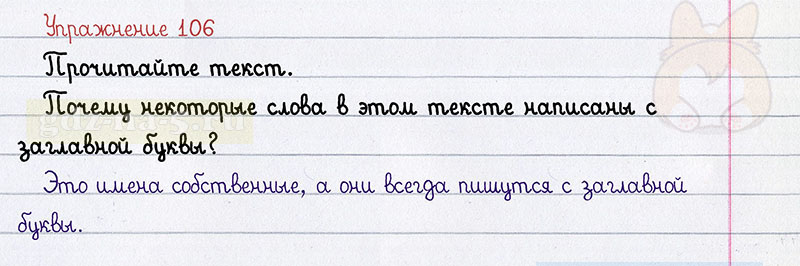 Упражнение 106
Прочитайте текст.
Почему некоторые слова в этом тексте написаны с
заглавной буквы?
Это имена собственные, а они всегда пишутся с заглавной
буквы.